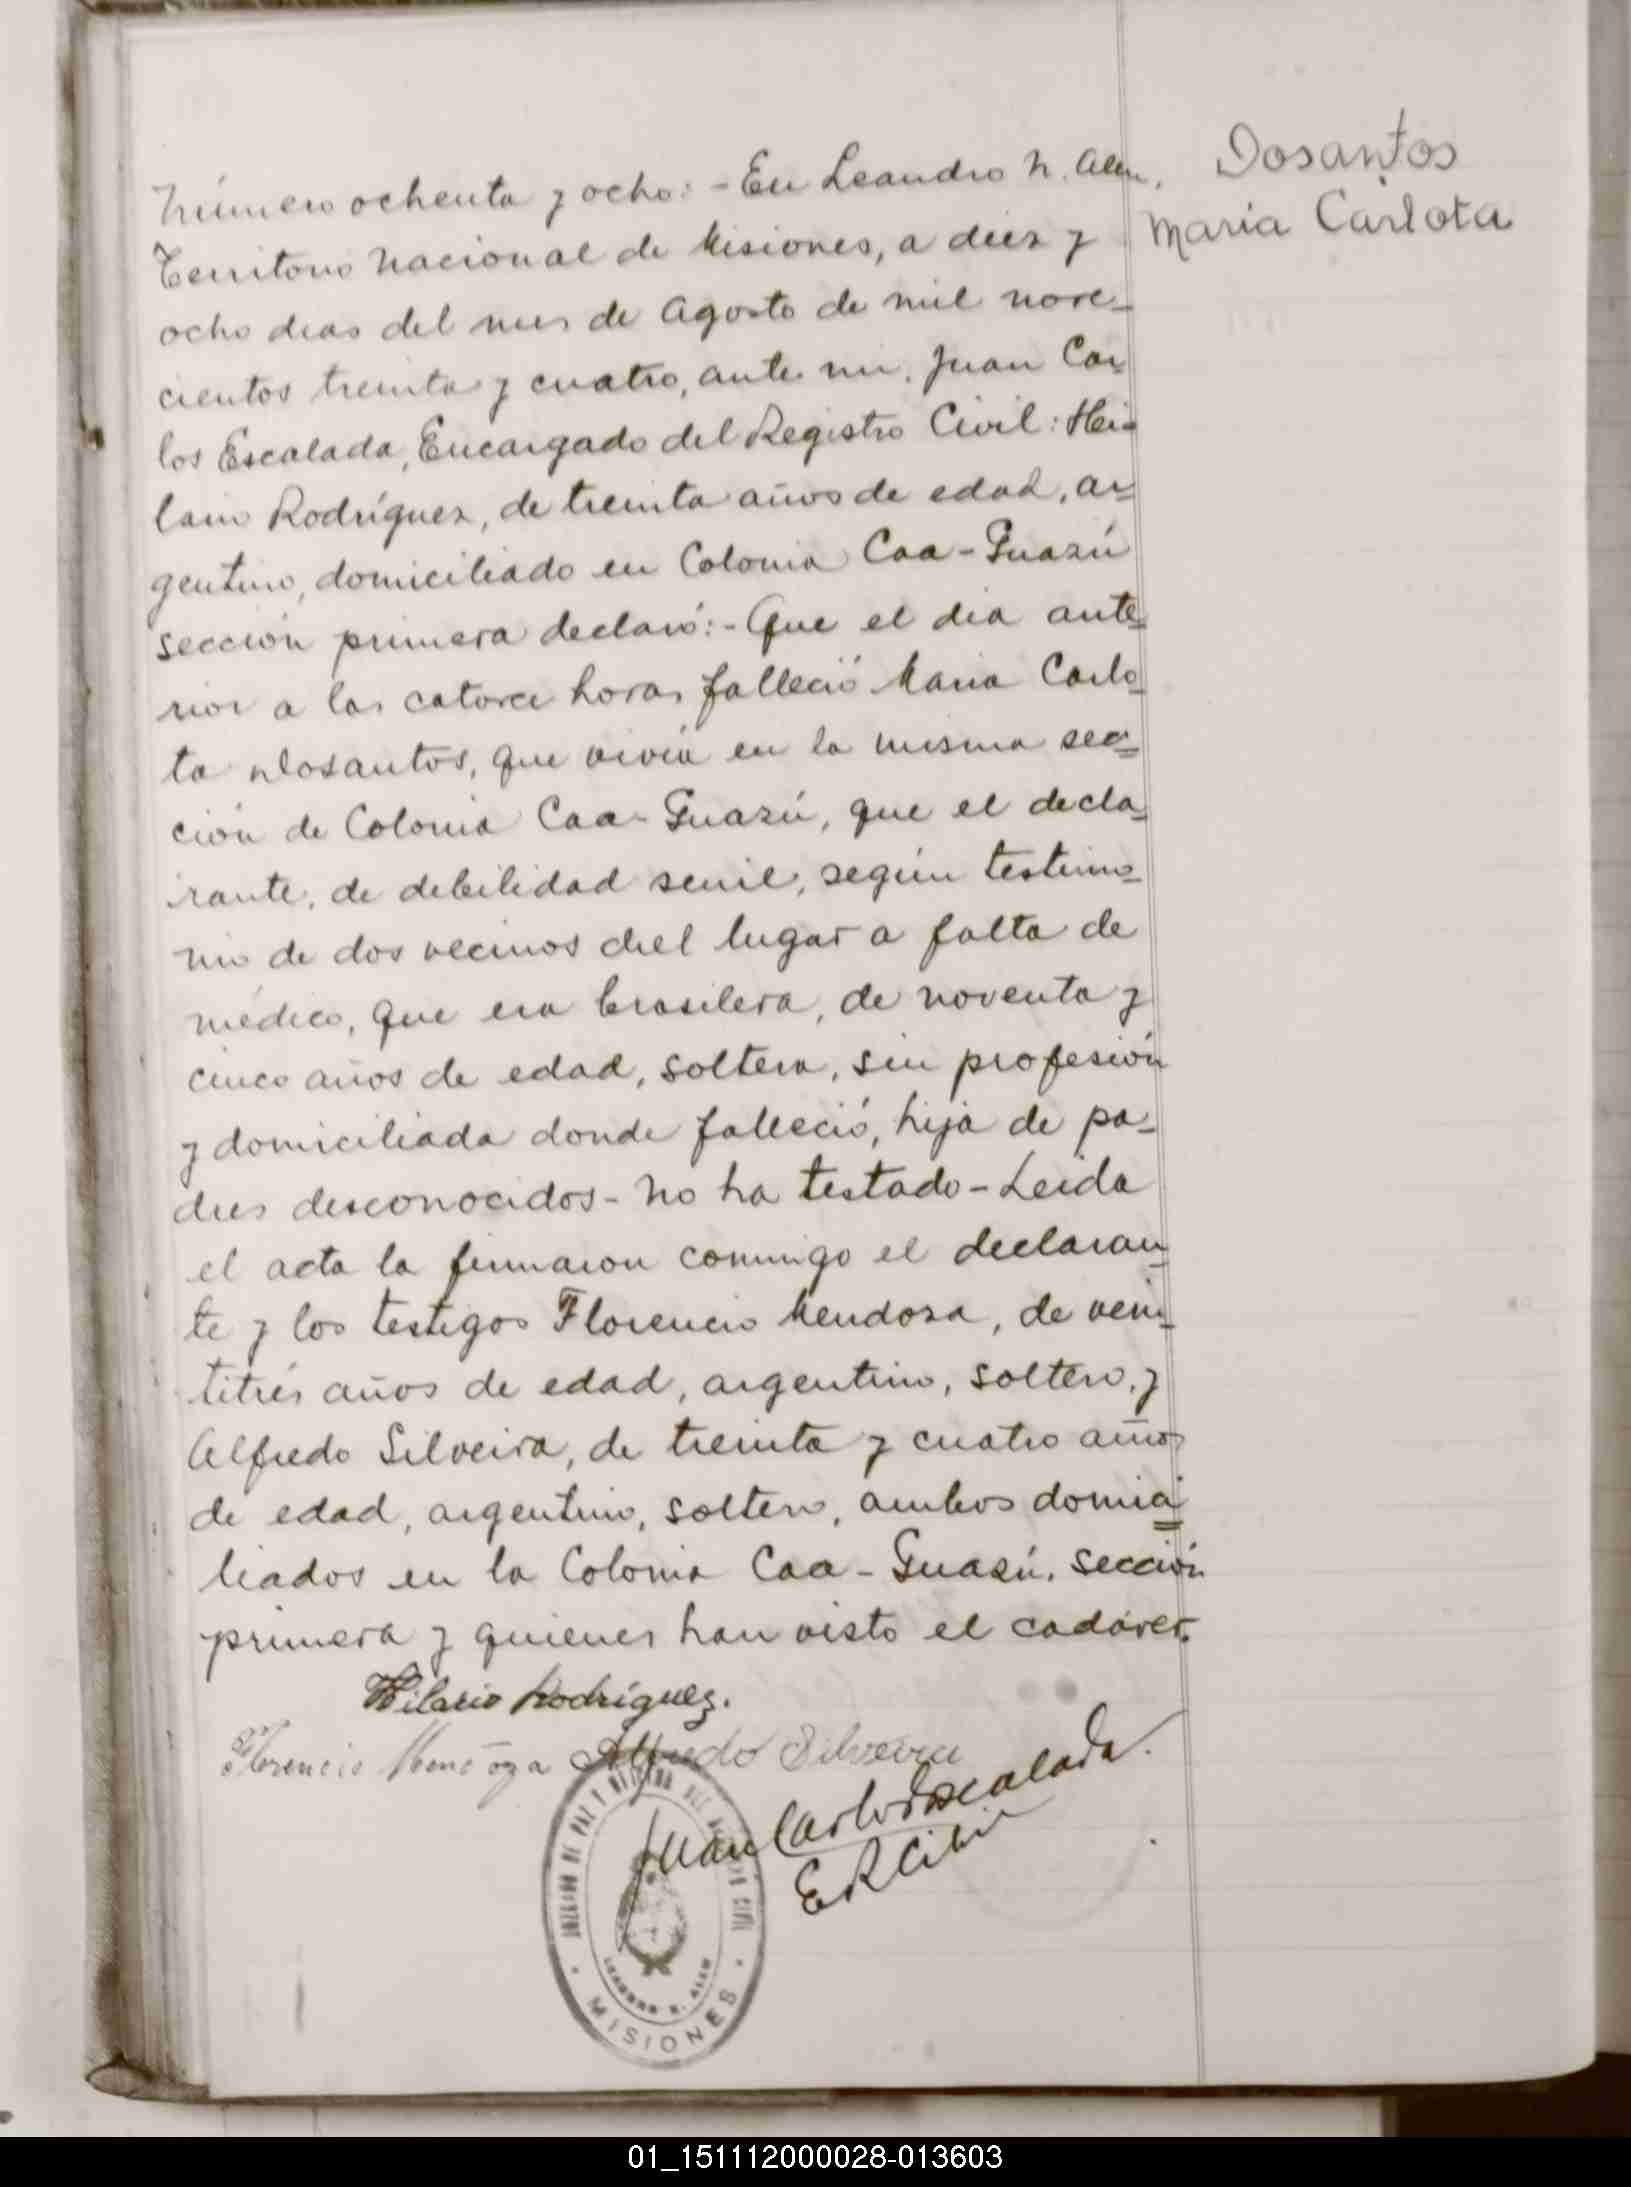 Dosantos
Maria Carlota
Número ochenta y ocho: - En Leandro N. Alem,
Territorio Nacional de Misiones, a diez y
ocho dias del mes de Agosto de mil nove-
cientos treinta y cuatro, ante mi, Juan Car-
los Escalada, Encargado del Registro Civil: Hei-
lario Rodríguez, de treinta años de edad, ar-
gentino, domiciliado en Colonia Caa-Guazú
sección primera declaró: - Que el dia ante-
rior a las catorce horas falleció Maria Carlo-
ta Dosantos, que vivía en la misma sec-
ción de Colonia Caa-Guazú, que el decla-
rante, de debilidad senil, según testimo-
nio de dos vecinos del lugar a falta de
médico, que era brasilera, de noventa y
cinco años de edad, soltera, sin profesión
y domiciliada donde falleció, hija de pa-
dres desconocidos - No ha testado - Leida
el acta la firmaron conmigo el declaran-
te y los testigos Florencio Mendoza, de vein-
titrés años de edad, argentino, soltero, y
Alfredo Silveira, de treinta y cuatro años
de edad, argentino, soltero, ambos domici-
liados en la Colonia Caa-Guazú, sección
primera y quienes han visto el cadáver.
Hilario Rodríguez.
Florencio Alfredo Silveira
Juan Carlos Escalada.
E R Civil
JUZGADO DE PAZ Y REGISTRO DEL ESTADO CIVIL
LEANDRO N. ALEM
MISIONES
01_151112000028-013603